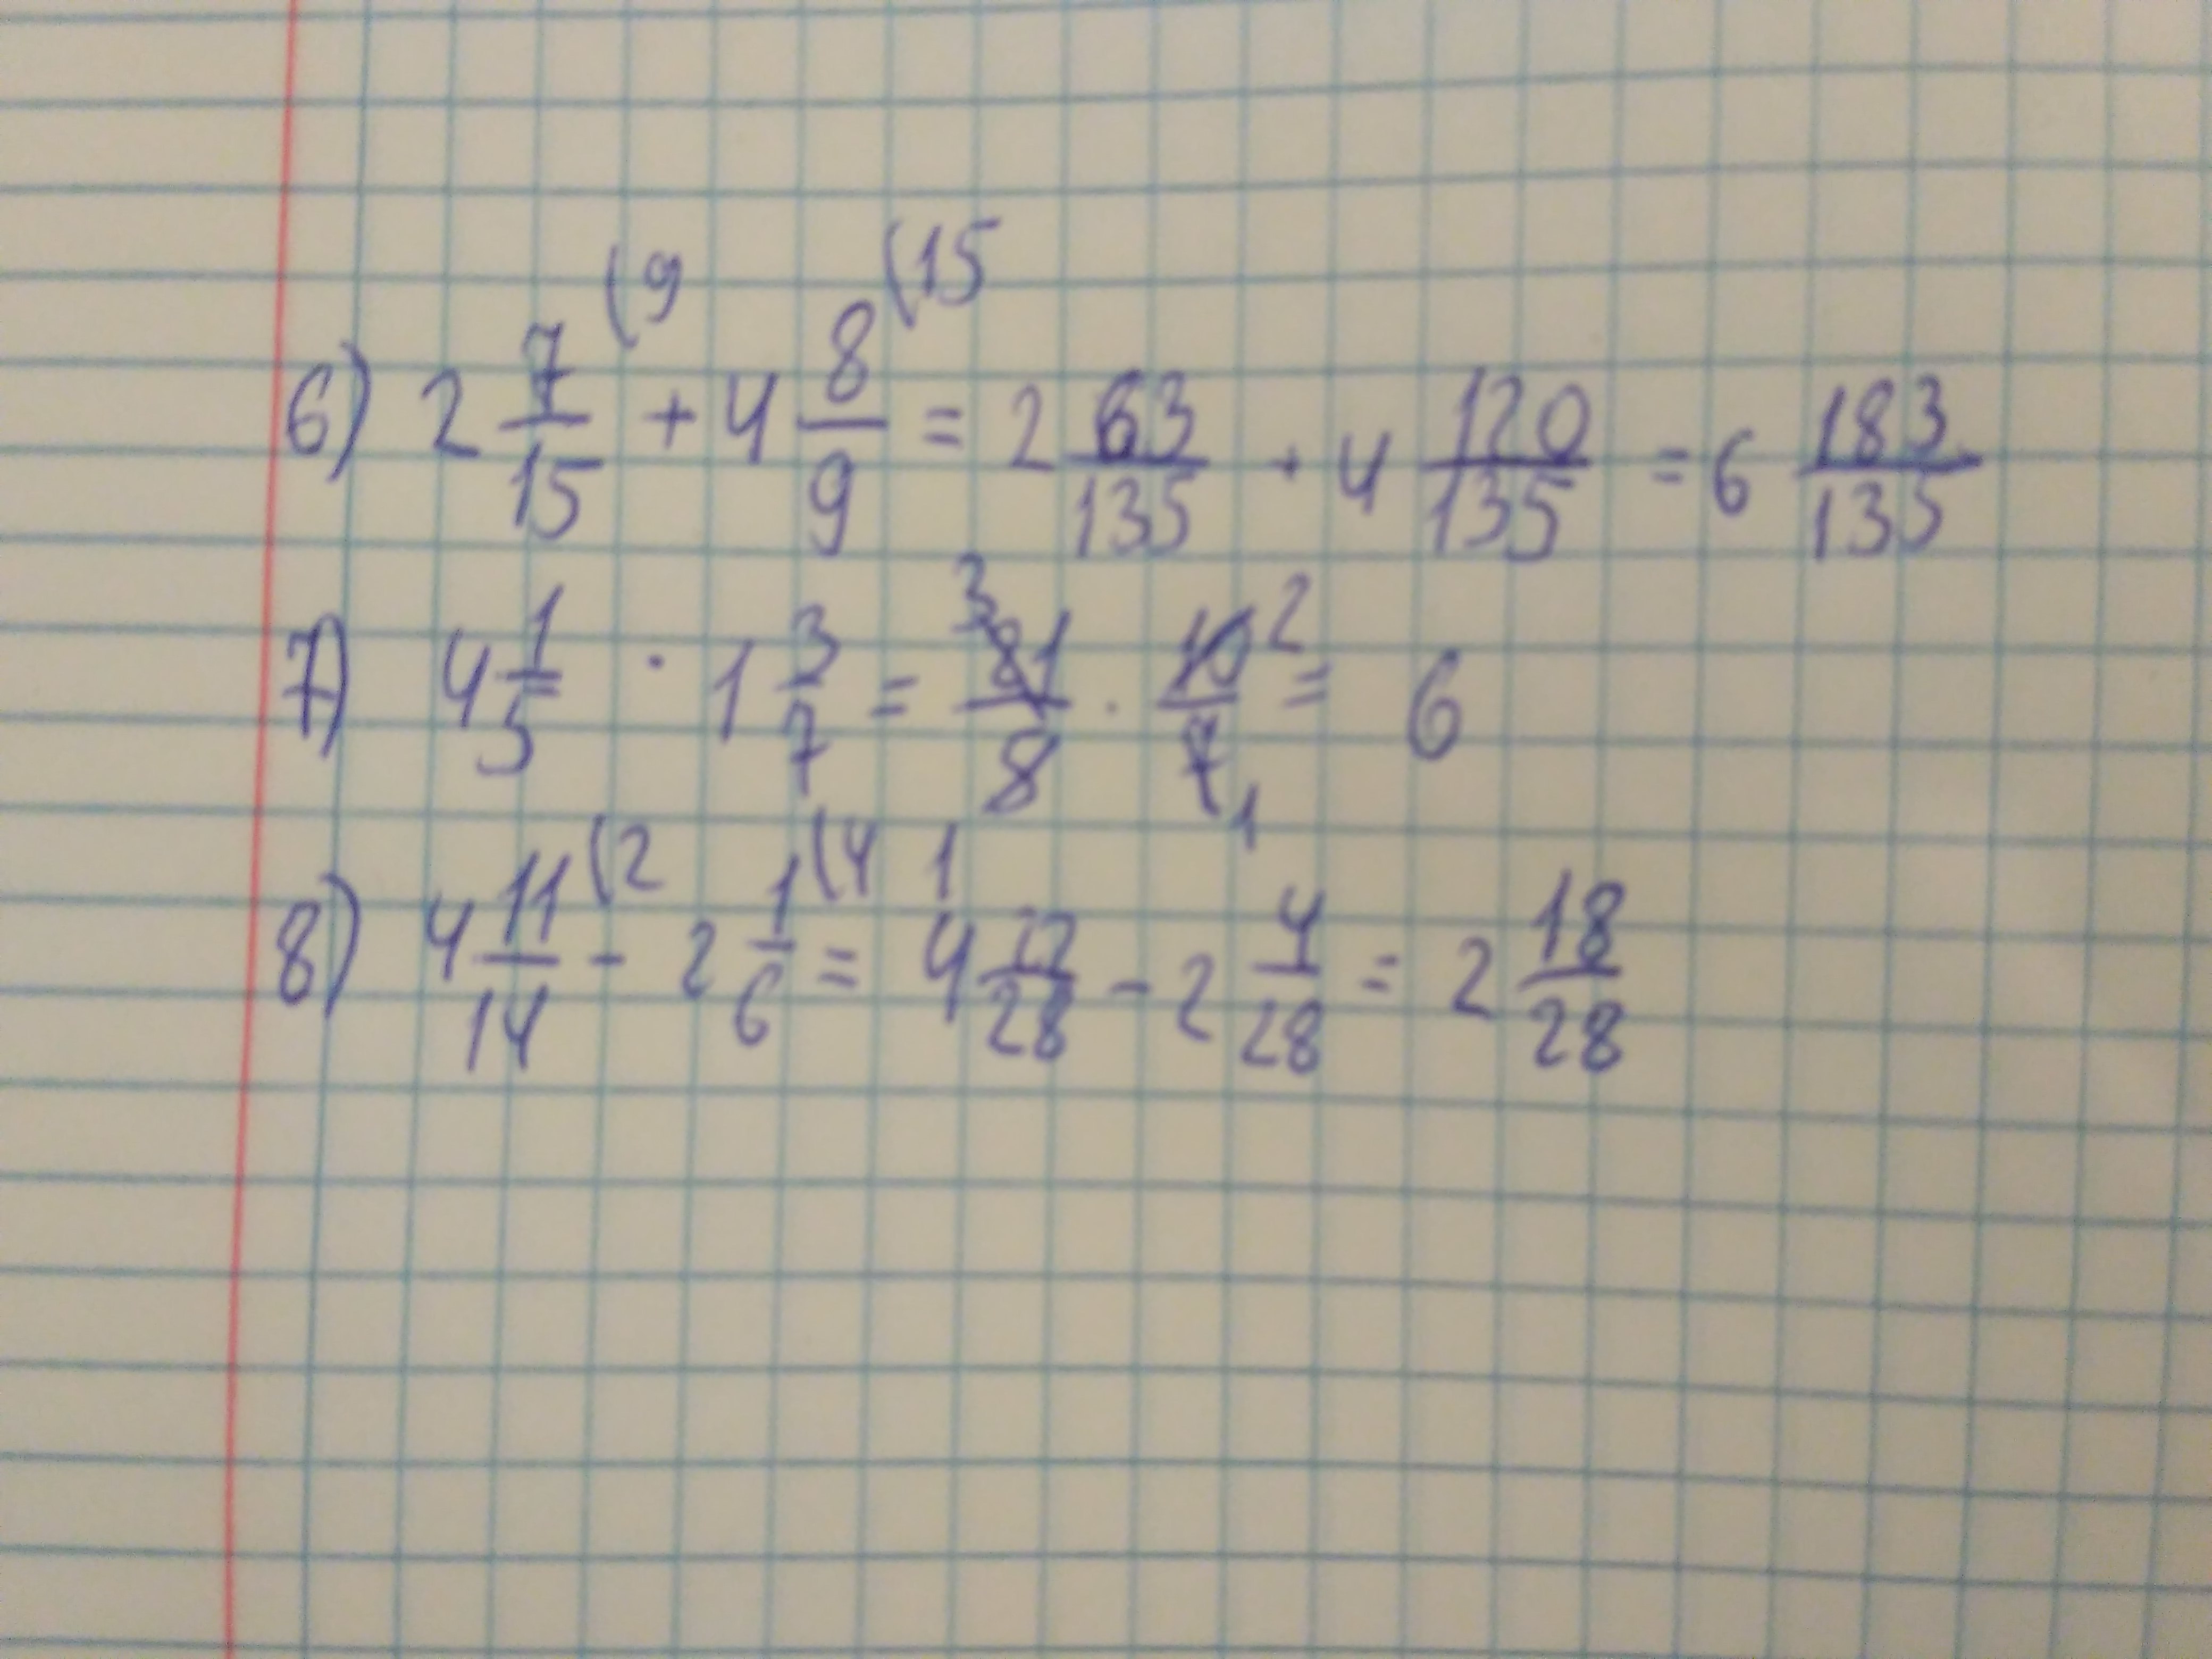 6) 2 7/15 (9 + 4 8/9 (15 = 2 63/135 + 4 120/135 = 6 183/135
7) 4 1/5 · 1 3/7 = 3 81/8 · 10/7 2 1 = 6
8) 4 11/14 (2 - 2 1/6 (4 = 1 4 22/28 - 2 4/28 = 2 18/28